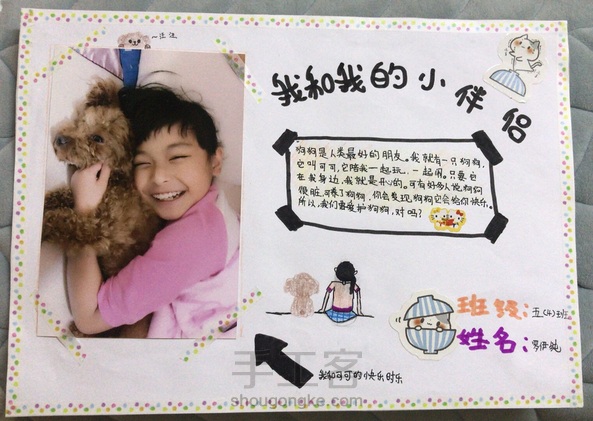 ~汪汪
我和我的小伴侣
狗狗是人类最好的朋友。我就有一只狗狗,
它叫可可,它陪我一起玩、一起乐。只要它
在我身边,我就是开心的。可有好多人说,狗狗
很脏,可养了狗狗,你会发现,狗狗它会给你快乐。
所以,我们需爱护狗狗,对吗?
班级:五(4)班
姓名:
我和可可的小快乐时乐
手工客
shougongke.com